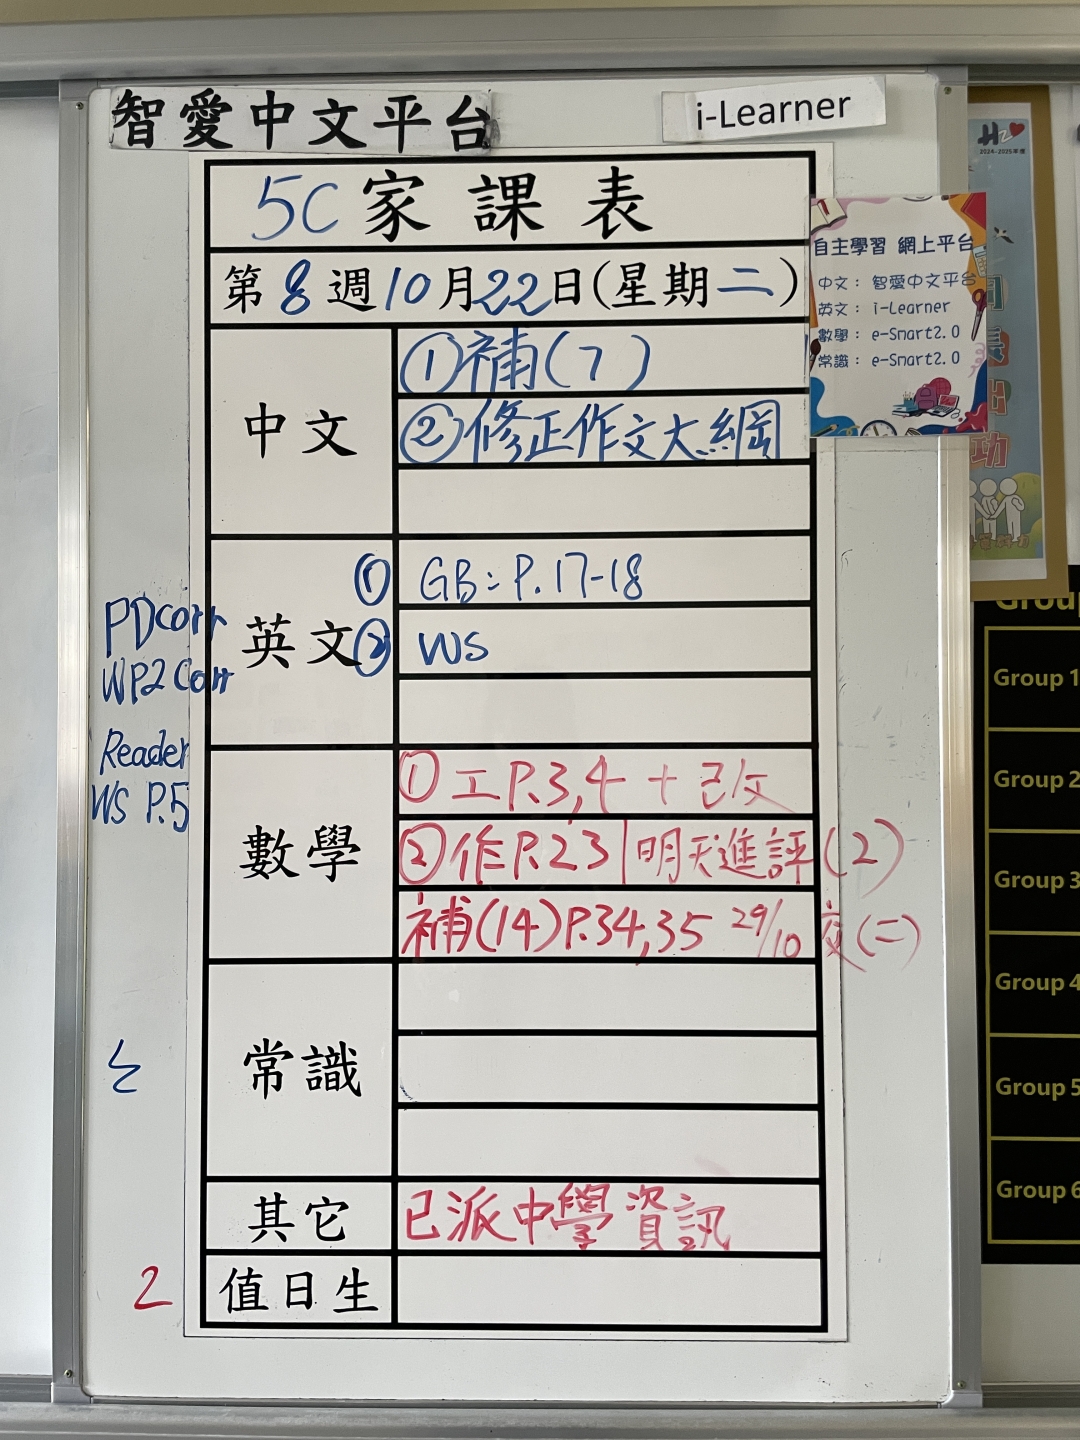 智愛中文平台
i-Learner
5C 家課表
第8週10月22日(星期二)
中文
①補(7)
②修正作文大綱
英文
① GB: P.17-18
② WS
PD corr
WP2 Corr
Reader
WS P.5
數學
①工P.3,4 + 已改
②作P.23 | 明天進評(2)
補(14)P.34,35 29/10 交(二)
常識
其它
已派中學資訊
值日生
2
2024-2025年度
自主學習 網上平台
中文： 智愛中文平台
英文： i-Learner
數學： e-Smart2.0
常識： e-Smart2.0
功
Group 1
Group 2
Group 3
Group 4
Group 5
Group 6